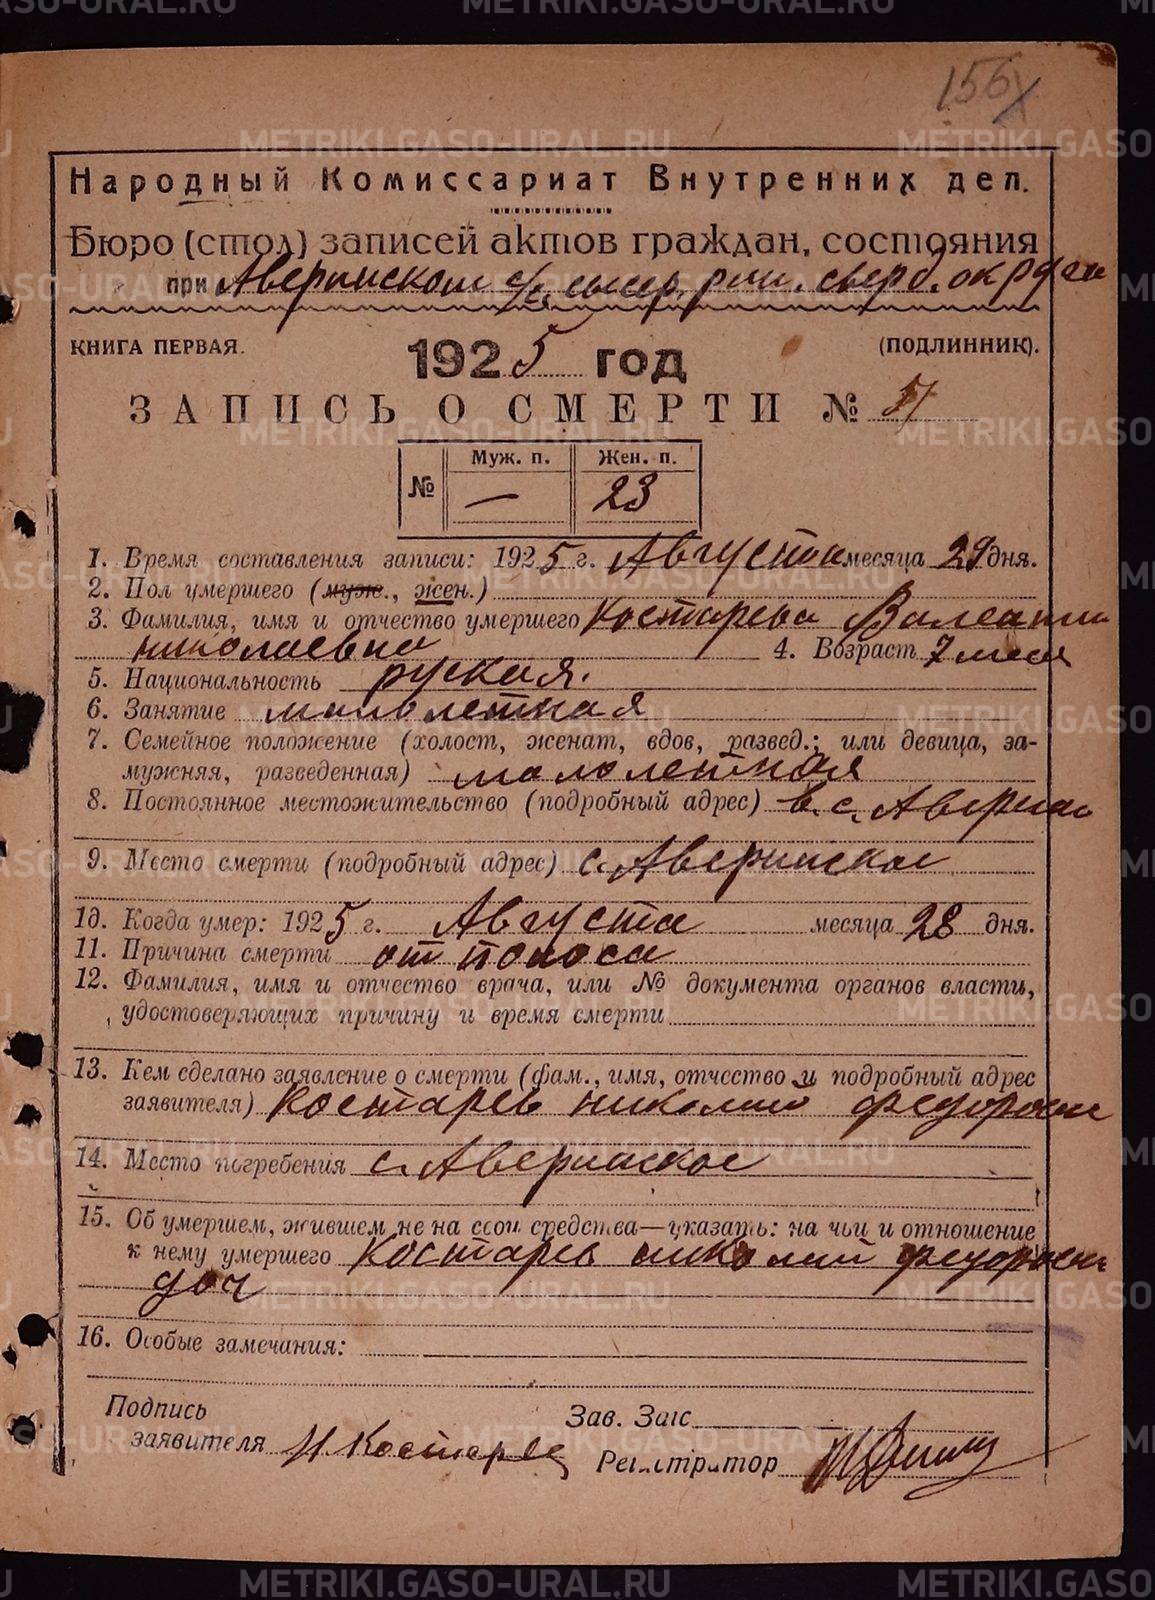 156
Народный Комиссариат Внутренних дел.
Бюро (стол) записей актов граждан, состояния
при Аверинском с/с сысер. рай. сверд. округа
КНИГА ПЕРВАЯ.
1925 год
(ПОДЛИННИК).
ЗАПИСЬ О СМЕРТИ №
Муж. п. Жен. п.
№ — 23
1. Время составления записи: 1925 г. Августа месяца 29 дня.
2. Пол умершего (муж., жен.)
3. Фамилия, имя и отчество умершего Костарева Валентина
николаевна 4. Возраст 7 меся
5. Национальность руская.
6. Занятие малолетная
7. Семейное положение (холост, женат, вдов, развед.; или девица, за-
мужняя, разведенная) малолетная
8. Постоянное местожительство (подробный адрес) в. с. Аверинс
9. Место смерти (подробный адрес) с. Аверинское
10. Когда умер: 1925 г. Августа месяца 28 дня.
11. Причина смерти от поноса
12. Фамилия, имя и отчество врача, или № документа органов власти,
удостоверяющих причину и время смерти
13. Кем сделано заявление о смерти (фам., имя, отчество и подробный адрес
заявителя) Костарев николай федорович
14. Место погребения с. Аверинское
15. Об умершем, жившем не на свои средства—указать: на чьи и отношение
к нему умершего Костарев николай федорович
доч
16. Особые замечания:
Подпись
заявителя Н Костарев
Зав. Загс
Регистратор
METRIKI.GASO-URAL.RU